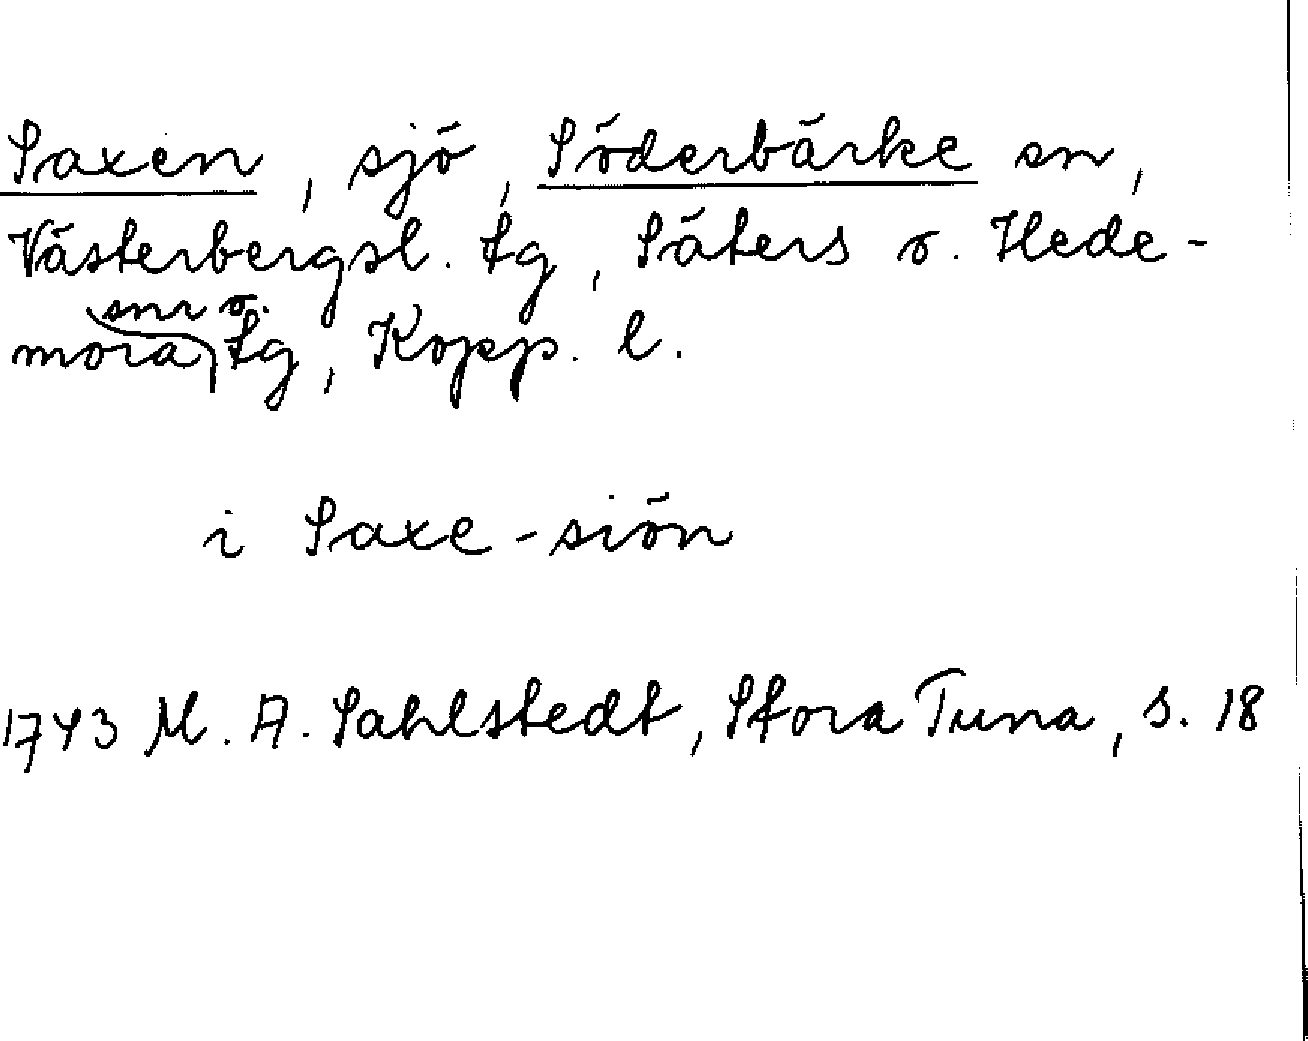 Saxen, sjö, Söderbärke sn,
Västerbergsl. tg, Säters o. Hede-
snr o.
mora tg, Kopp. l.
i Saxe-siön
1743 M. A. Sahlstedt, Stora Tuna, s. 18